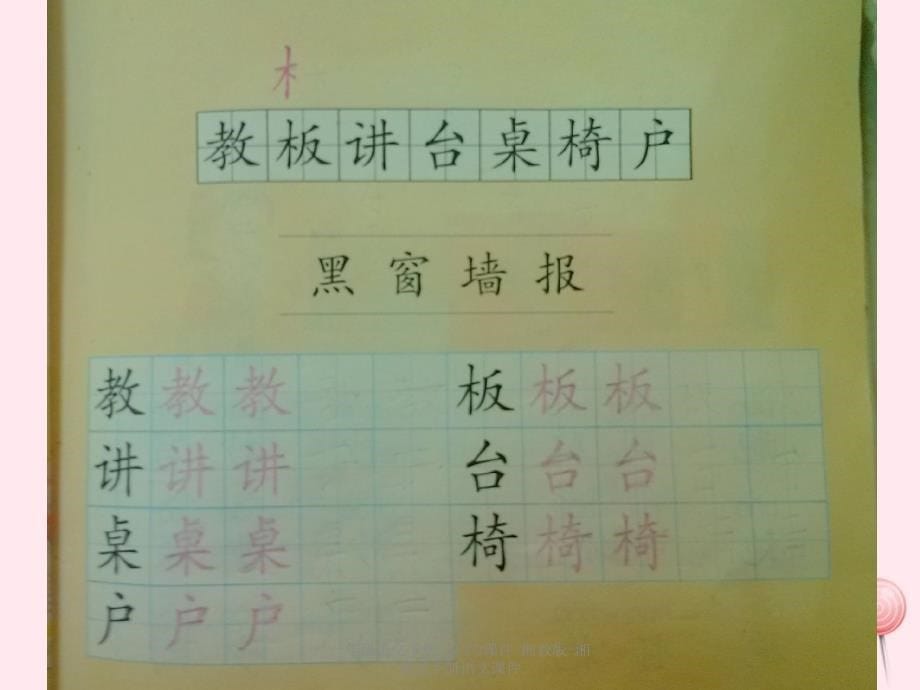 木
教板讲台桌椅户
黑窗墙报
教教教 板板板
讲讲讲 台台台
桌桌桌 椅椅椅
户户户